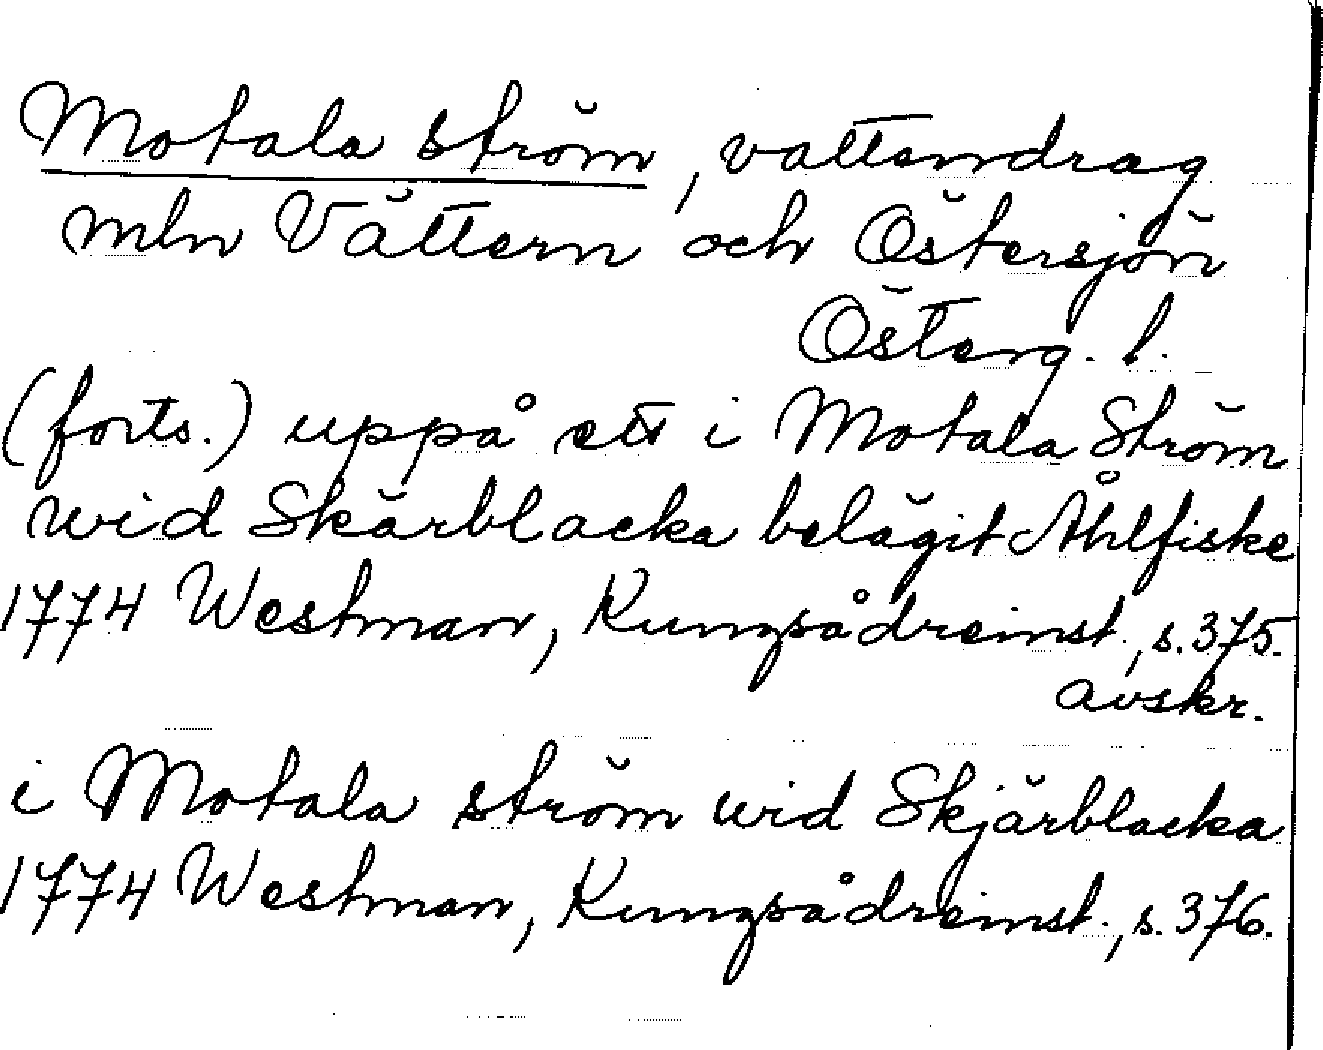 Motala ström, vattendrag
mln Vättern och Östersjön
Österg. l.
(forts.) uppå ett i Motala Ström
wid Skärblacka belägit Åhlfiske
1774 Westman, Kungsådreinst., s. 375.
avskr.
i Motala ström wid Skjärblacka
1774 Westman, Kungsådreinst., s. 376.